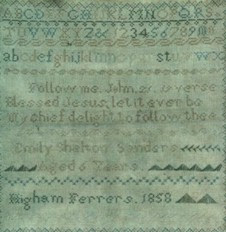 ABCD
TUVWXYZ& 123456789
abcdefghijklmnop st
Follow me. John. 21. verse
Blessed Jesus, let it ever be
My chief delight to follow thee
Emily Sanders
Aged 6 Years.
Higham Ferrers. 1858